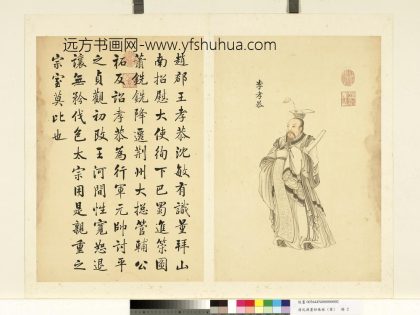 远方书画网-www.yfshuhua.com
趙郡王孝恭沈敏有識量拜山
南招慰大使徇下巴蜀進策圖
蕭銑銑降遷荆州大摠管輔公
祏反詔孝恭為行軍元帥討平
之貞觀初改王河間性寬恕退
讓無矜伐色太宗用是親重之
宗室莫比也
李孝恭